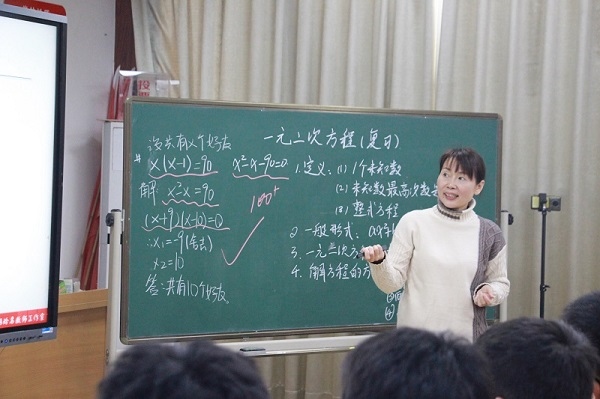 设共有x个好友
x(x-1)=90
解: x²-x=90
(x+9)(x-10)=0
∴x₁=-9(舍去)
x₂=10
答:共有10个好友.
x²-x-90=0
100⁺
一元二次方程(复习)
1.定义: (1) 1个未知数
(2) 未知数最高次数
(3) 整式方程
2 一般形式:
3. 一元二次方
4. 解方程的方
工作室